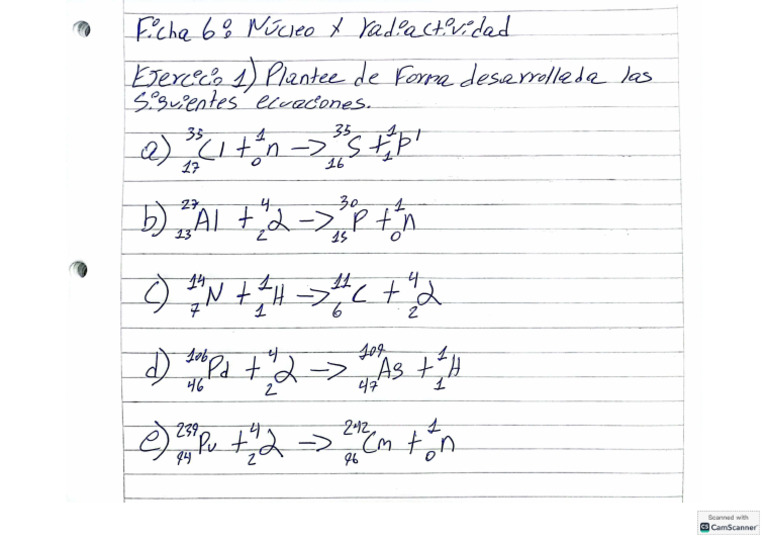 Ficha 6: Núcleo y radiactividad
Ejercicio 1) Plantee de forma desarrollada las
siguientes ecuaciones.
a) ³⁵₁₇Cl + ¹₀n -> ³⁵₁₆S + ¹₁p'
b) ²⁷₁₃Al + ⁴₂α -> ³⁰₁₅P + ¹₀n
c) ¹⁴₇N + ¹₁H -> ¹¹₆C + ⁴₂α
d) ¹⁰⁶₄₆Pd + ⁴₂α -> ¹⁰⁹₄₇Ag + ¹₁H
e) ²³⁹₉₄Pu + ⁴₂α -> ²⁴²₉₆Cm + ¹₀n
Scanned with
CS CamScanner